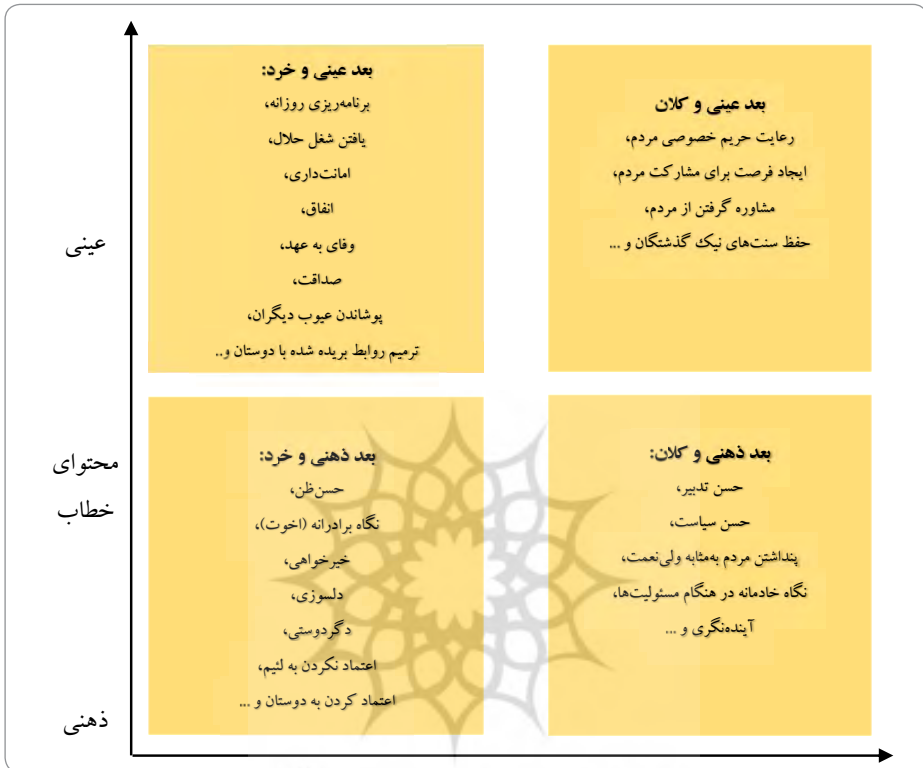 عینی
محتوای
خطاب
ذهنی
بعد عینی و خرد:
برنامه‌ریزی روزانه،
یافتن شغل حلال،
امانت‌داری،
انفاق،
وفای به عهد،
صداقت،
پوشاندن عیوب دیگران،
ترمیم روابط بریده شده با دوستان و..
بعد عینی و کلان
رعایت حریم خصوصی مردم،
ایجاد فرصت برای مشارکت مردم،
مشاوره گرفتن از مردم،
حفظ سنت‌های نیک گذشتگان و ...
بعد ذهنی و خرد:
حسن‌ظن،
نگاه برادرانه (اخوت)،
خیرخواهی،
دلسوزی،
دگردوستی،
اعتماد نکردن به لئیم،
اعتماد کردن به دوستان و ...
بعد ذهنی و کلان:
حسن تدبیر،
حسن سیاست،
پنداشتن مردم به‌مثابه ولی‌نعمت،
نگاه خادمانه در هنگام مسئولیت‌ها،
آینده‌نگری و ...